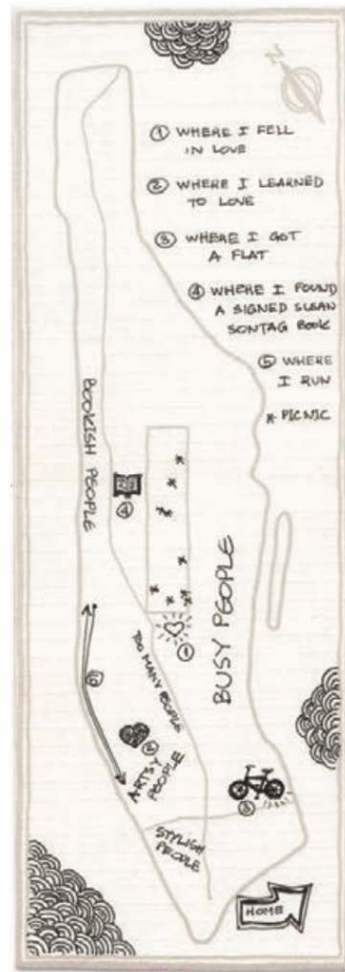 N
① WHERE I FELL
IN LOVE
② WHERE I LEARNED
TO LOVE
③ WHERE I GOT
A FLAT
④ WHERE I FOUND
A SIGNED SUSAN
SONTAG BOOK
⑤ WHERE
I RUN
* PICNIC
BOOKISH PEOPLE
④
BUSY PEOPLE
①
TOO MANY PEOPLE
②
ARTSY
PEOPLE
③
STYLISH
PEOPLE
HOME